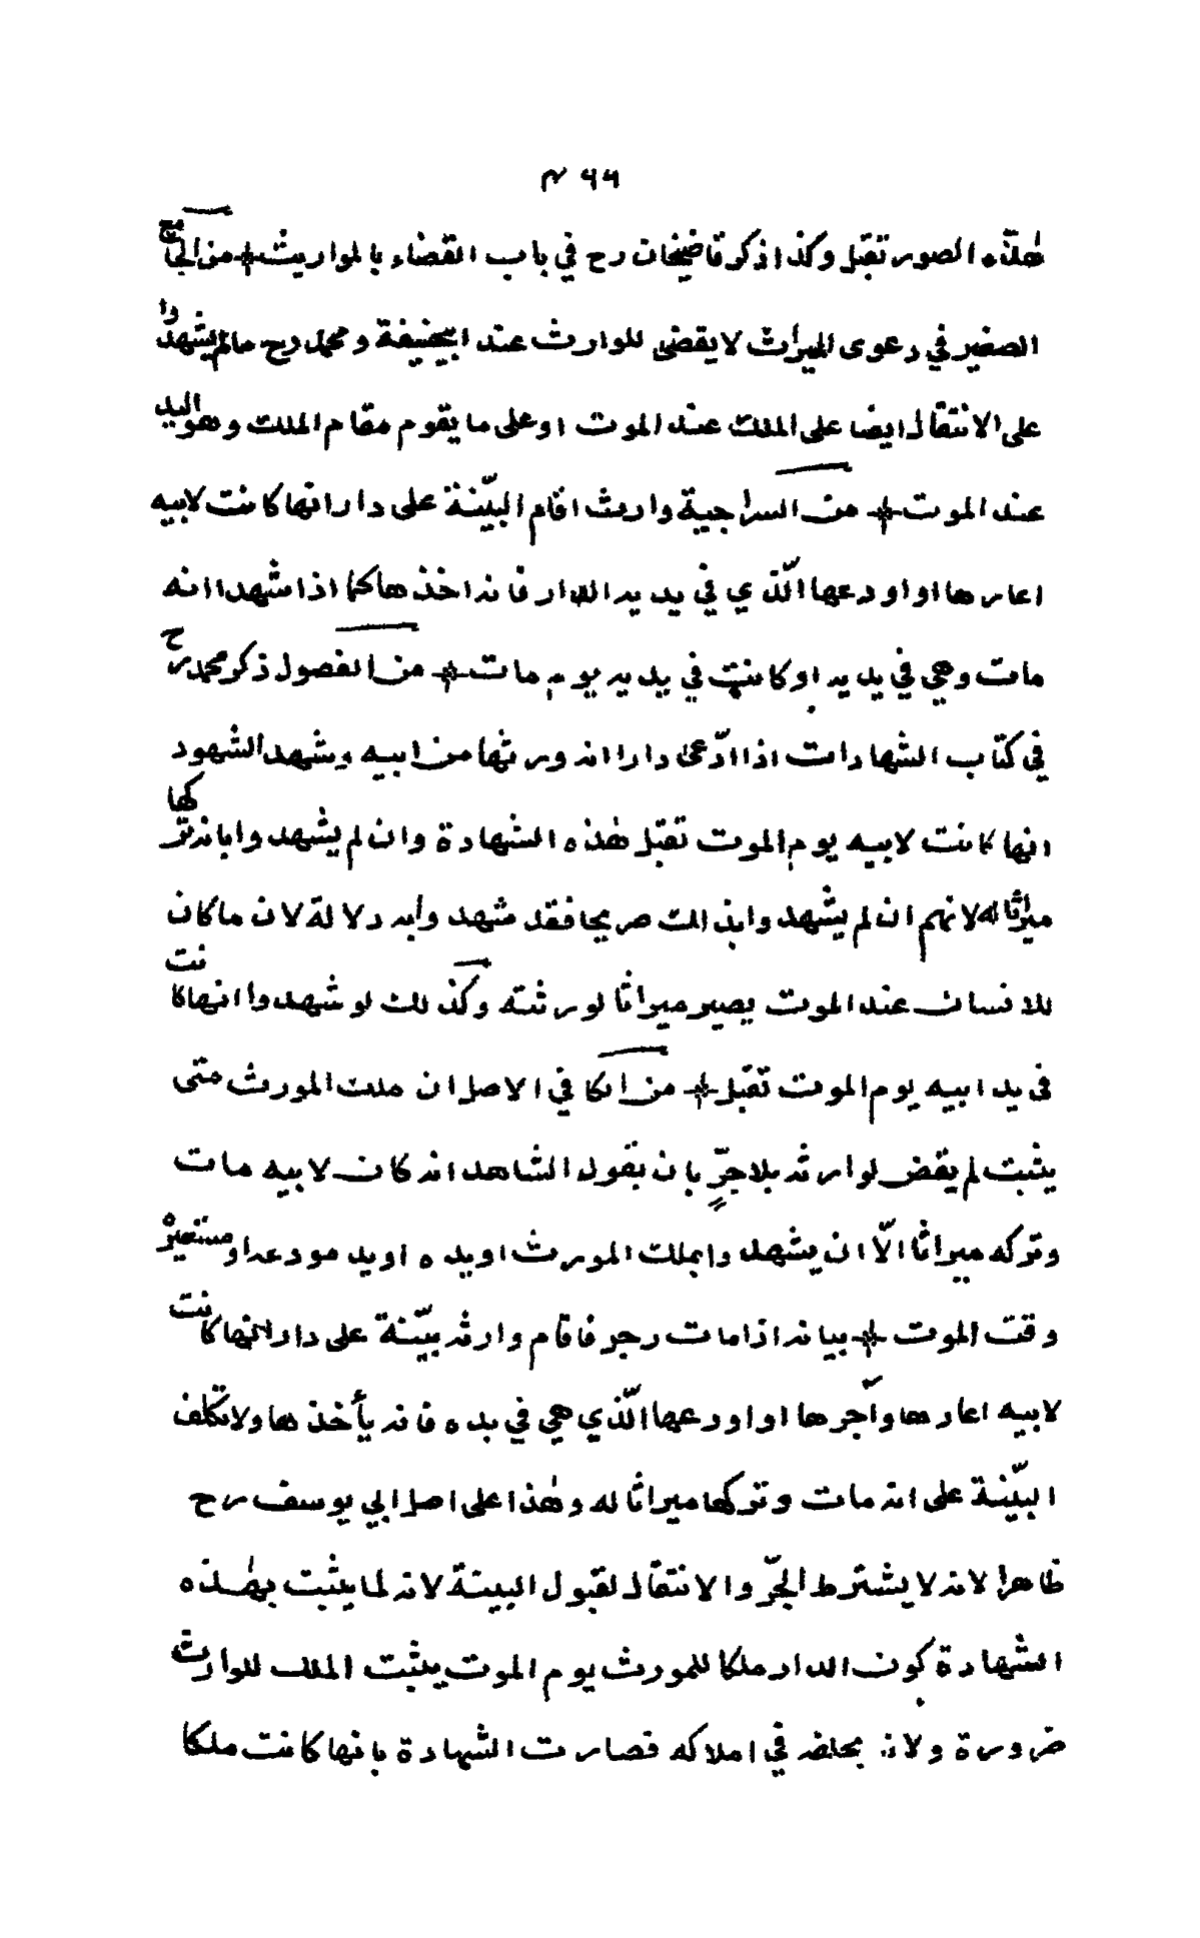 ٤٦٦
هٰذه الصور تقبل وكذا ذكر قاضيخان رح في باب القضاء بالمواريث ⁜ من الجامع
الصغير في دعوى الميراث لا يقضى للوارث عند ابيحنيفة ومحمد رح مالم يشهدوا
على الانتقال ايضا على الملك عند الموت او على ما يقوم مقام الملك وهو اليد
عند الموت ⁜ من السراجية وارث اقام البيّنة على دار انها كانت لابيه
اعارها او اودعها الّذي في يديه الدار فانه اخذها كما اذا شهدا انه
مات وهي في يديه او كانت في يديه يوم مات ⁜ من الفصول ذكر محمد رح
في كتاب الشهادات اذا ادّعى دارا انه ورثها من ابيه وشهد الشهود
انها كانت لابيه يوم الموت تقبل هٰذه الشهادة وان لم يشهدوا بانه تركها
ميراثا له لانهم ان لم يشهدوا بذالك صريحا فقد شهدوا به دلالة لان ما كان
للانسان عند الموت يصير ميراثا لورثته وكذلك لو شهدوا انها كانت
في يد ابيه يوم الموت تقبل ⁜ من الكافي الاصل ان ملك المورث متى
يثبت لم يقض لوارثه بلا جرٍّ بان يقول الشاهد انه كان لابيه مات
وتركه ميراثا الّا ان يشهدوا بملك المورث او يده او يد مودعه او مستعيره
وقت الموت ⁜ بيانه اذا مات رجل فاقام وارثه بيّنة على دار انها كانت
لابيه اعارها وآجرها او اودعها الّذي هي في يده فانه يأخذها ولا تكلف
البيّنة على انه مات وتركها ميراثا له وهٰذا على اصل ابي يوسف رح
ظاهر لانه لا يشترط الجرّ والانتقال لقبول البينة لانه لما يثبت بهٰذه
الشهادة كون الدار ملكا للمورث يوم الموت يثبت الملك للوارث
ضرورة ولانه يخلفه في املاكه فصارت الشهادة بانها كانت ملكا